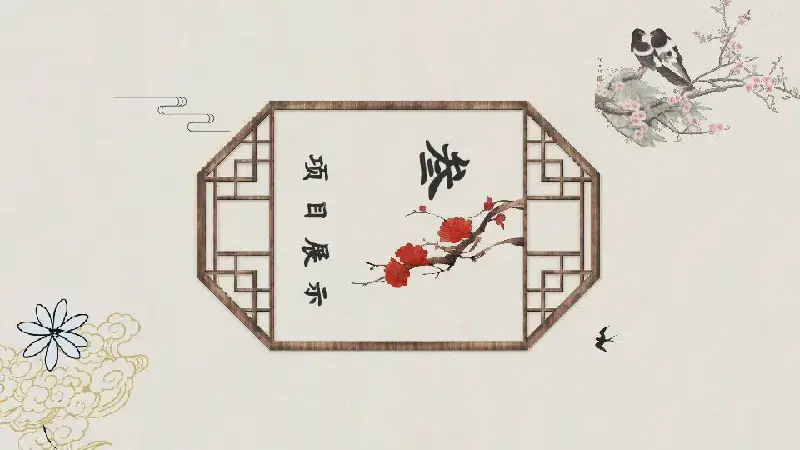 叁
项目展示